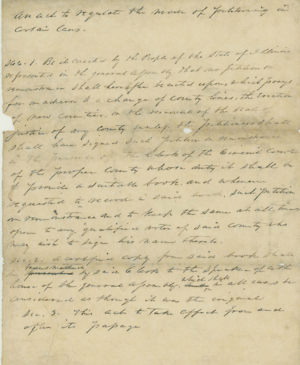 An act to regulate the mode of petitioning in
certain cases.
Sec. 1. Be it enacted by the People of the State of Illinois
represented in the general assembly That no petition or
remonstrance shall hereafter be acted upon, which prays
for or adverse to a change of County lines, the location
of new Counties, or the removal of the seat of
Justice of any County unless the petitioners shall
shall have signed such petition or remonstrance
in the presence of the Clerk of the
of the proper County whose duty it shall be
to provide a suitable book and whenever
requested to record in said book, such petition
or remonstrance and to keep the same at all times
open to any qualified voter of said County who
may wish to sign his name thereto.
Sec. 2. A certified copy from said book shall
by said Clerk to the Speaker of either
house of the general assembly, which shall in all cases be
considered as though it was the original
Sec. 3. This act to take effect from and
after its passage